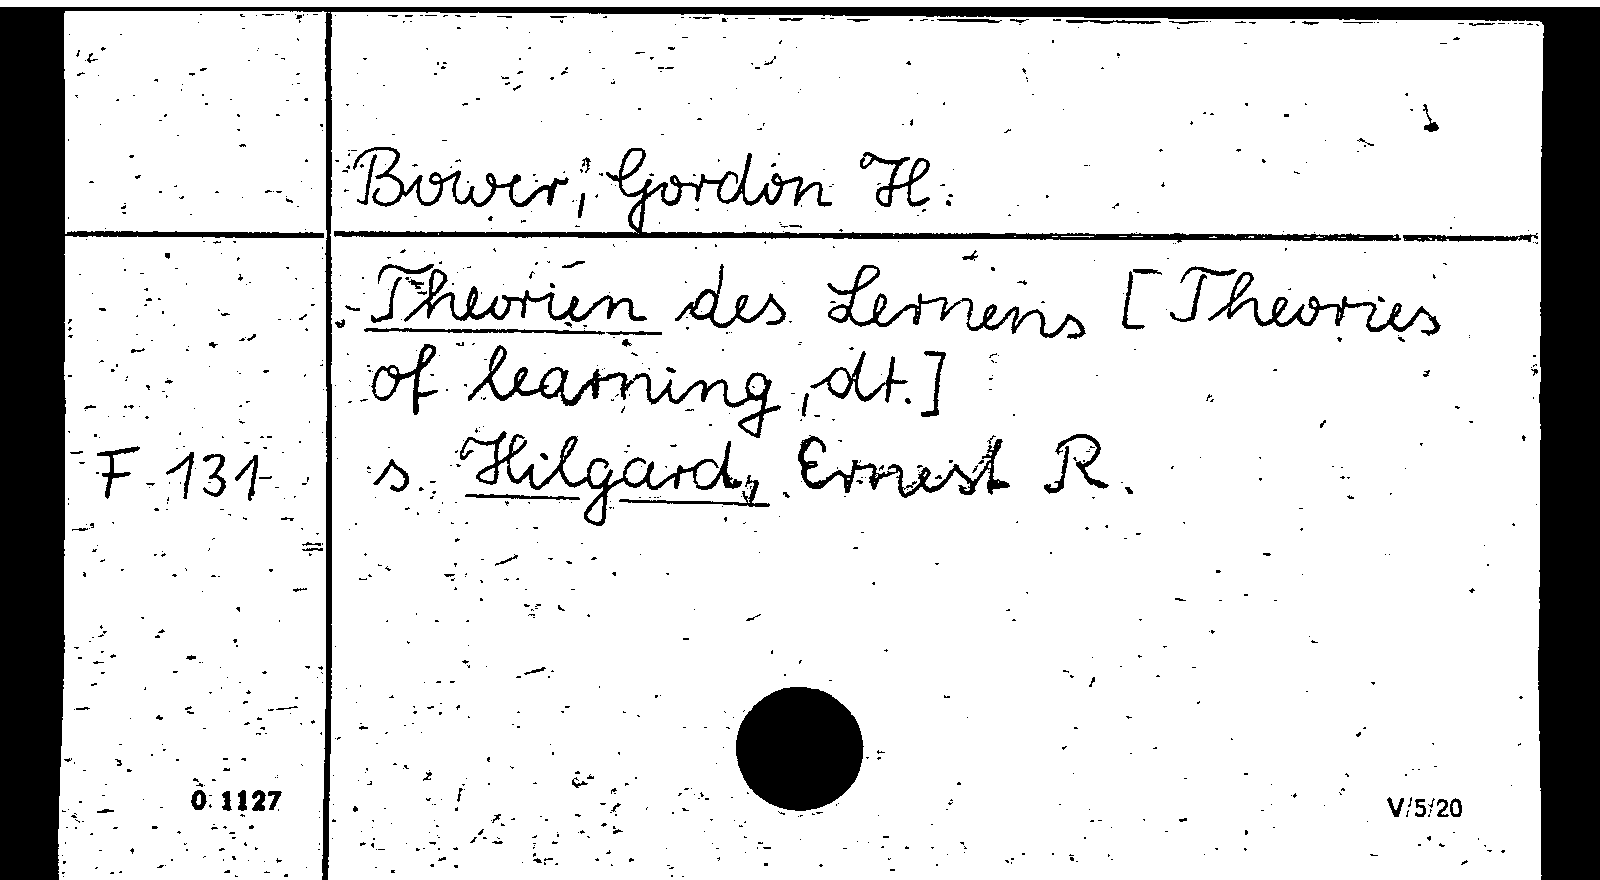 Bower, Gordon H.
Theorien des Lernens [Theories
of learning, dt.]
F 131 s. Hilgard, Ernest R.
0 1127 V/5/20